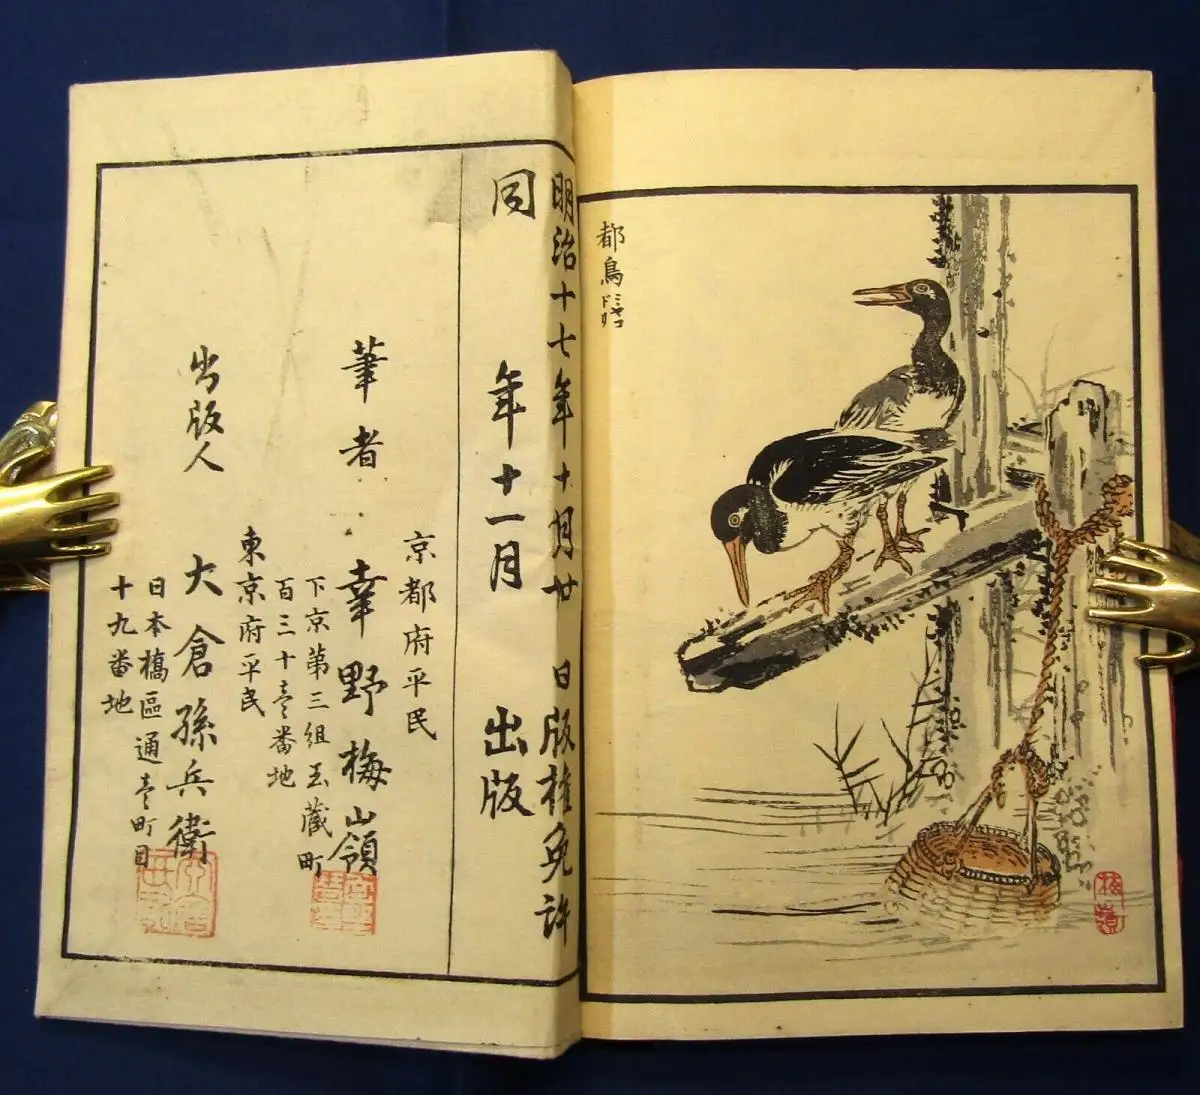 都鳥
ミヤコ
ドリ
明治十七年十月廿日版権免許
同年十一月出版
京都府平民
筆者 幸野梅嶺
下京第三組玉蔵町
百三十壱番地
東京府平民
出版人 大倉孫兵衛
日本橋區通壱町目
十九番地
梅嶺